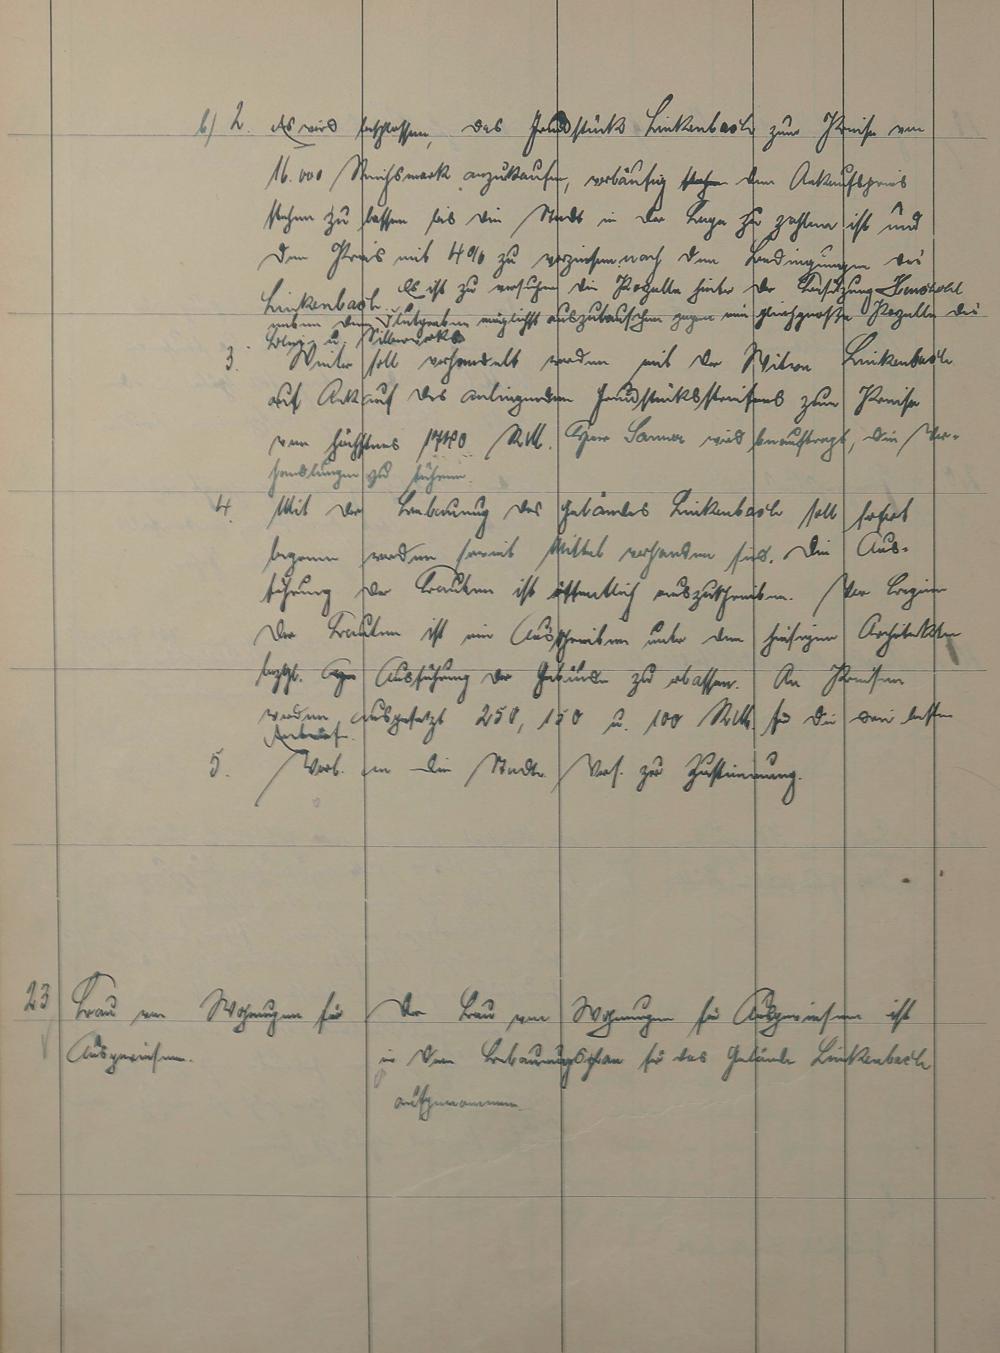 b) 2. Es wird beschlossen, das Grundstück Linkenbach zum Preise von
16.000 Reichsmark anzukaufen, vorläufig den Ankaufspreis
stehen zu lassen bis die Stadt in der Lage zu zahlen ist und
den Preis mit 4% zu verzinsen nach den Bedingungen des
Linkenbach. Es ist zu versuchen die Parzelle hinter der Besitzung
neben dem Flutgraben möglichst auszutauschen gegen eine gleichgroße Parzelle des
Blei- u. Silberwerks
3. Weiter soll verhandelt werden mit der Witwe Linkenbach
auf Ankauf des anliegenden Grundstücksstreifens zum Preise
von höchstens RM. Herr wird beauftragt, die Ver-
handlungen zu führen.
4. Mit der Bebauung des Geländes Linkenbach soll sofort
begonnen werden soweit Mittel vorhanden sind. Die Aus-
führung der Bauten ist öffentlich auszuschreiben. Vor Beginn
der Bauten ist ein Ausschreiben unter den hiesigen Architekten
bezgl. Ausführung der Gebäude zu erlassen. An Preisen
werden ausgesetzt 250, 150 u. 100 RM. für die drei besten
Entwürfe.
5. Vorl. an die Stadtv. Vers. zur Zustimmung.
23 Bau von Wohnungen für
Ausgewiesene.
Der Bau von Wohnungen für Ausgewiesene ist
in dem Bebauungsplan für das Gelände Linkenbach
aufgenommen.